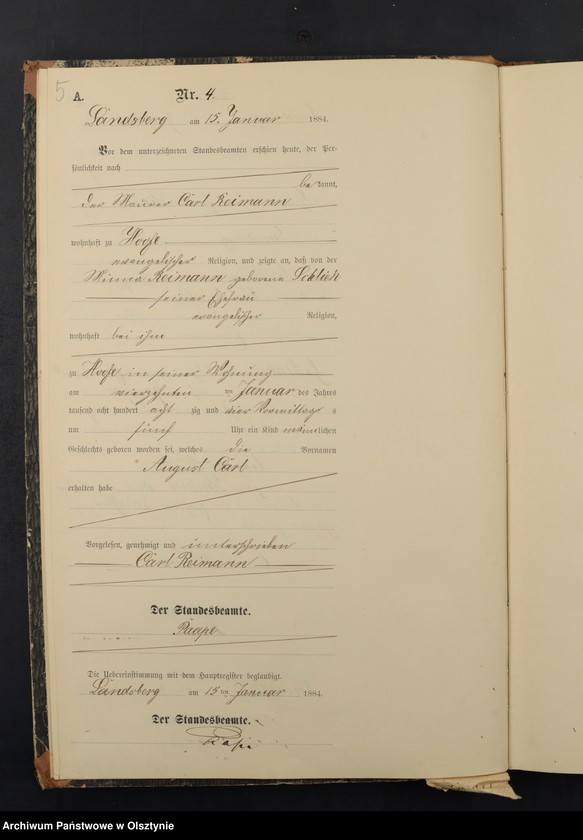 5
A. Nr. 4.
Landsberg am 15. Januar 1884.
Vor dem unterzeichneten Standesbeamten erschien heute, der Per-
sönlichkeit nach
be kannt,
der Maurer Carl Reimann
wohnhaft zu
evangelischer Religion, und zeigte an, daß von der
Minna Reimann geborene Schlick
seiner Ehefrau
evangelischer Religion,
wohnhaft bei ihm
zu in seiner Wohnung
am vierzehnten ten Januar des Jahres
tausend acht hundert acht zig und vier Vormittags
um fünf Uhr ein Kind männlichen
Geschlechts geboren worden sei, welches die Vornamen
August Carl
erhalten habe
Vorgelesen, genehmigt und unterschrieben
Carl Reimann
Der Standesbeamte.
Die Uebereinstimmung mit dem Hauptregister beglaubigt.
Landsberg am 15 ten Januar 1884.
Der Standesbeamte.
Archiwum Państwowe w Olsztynie